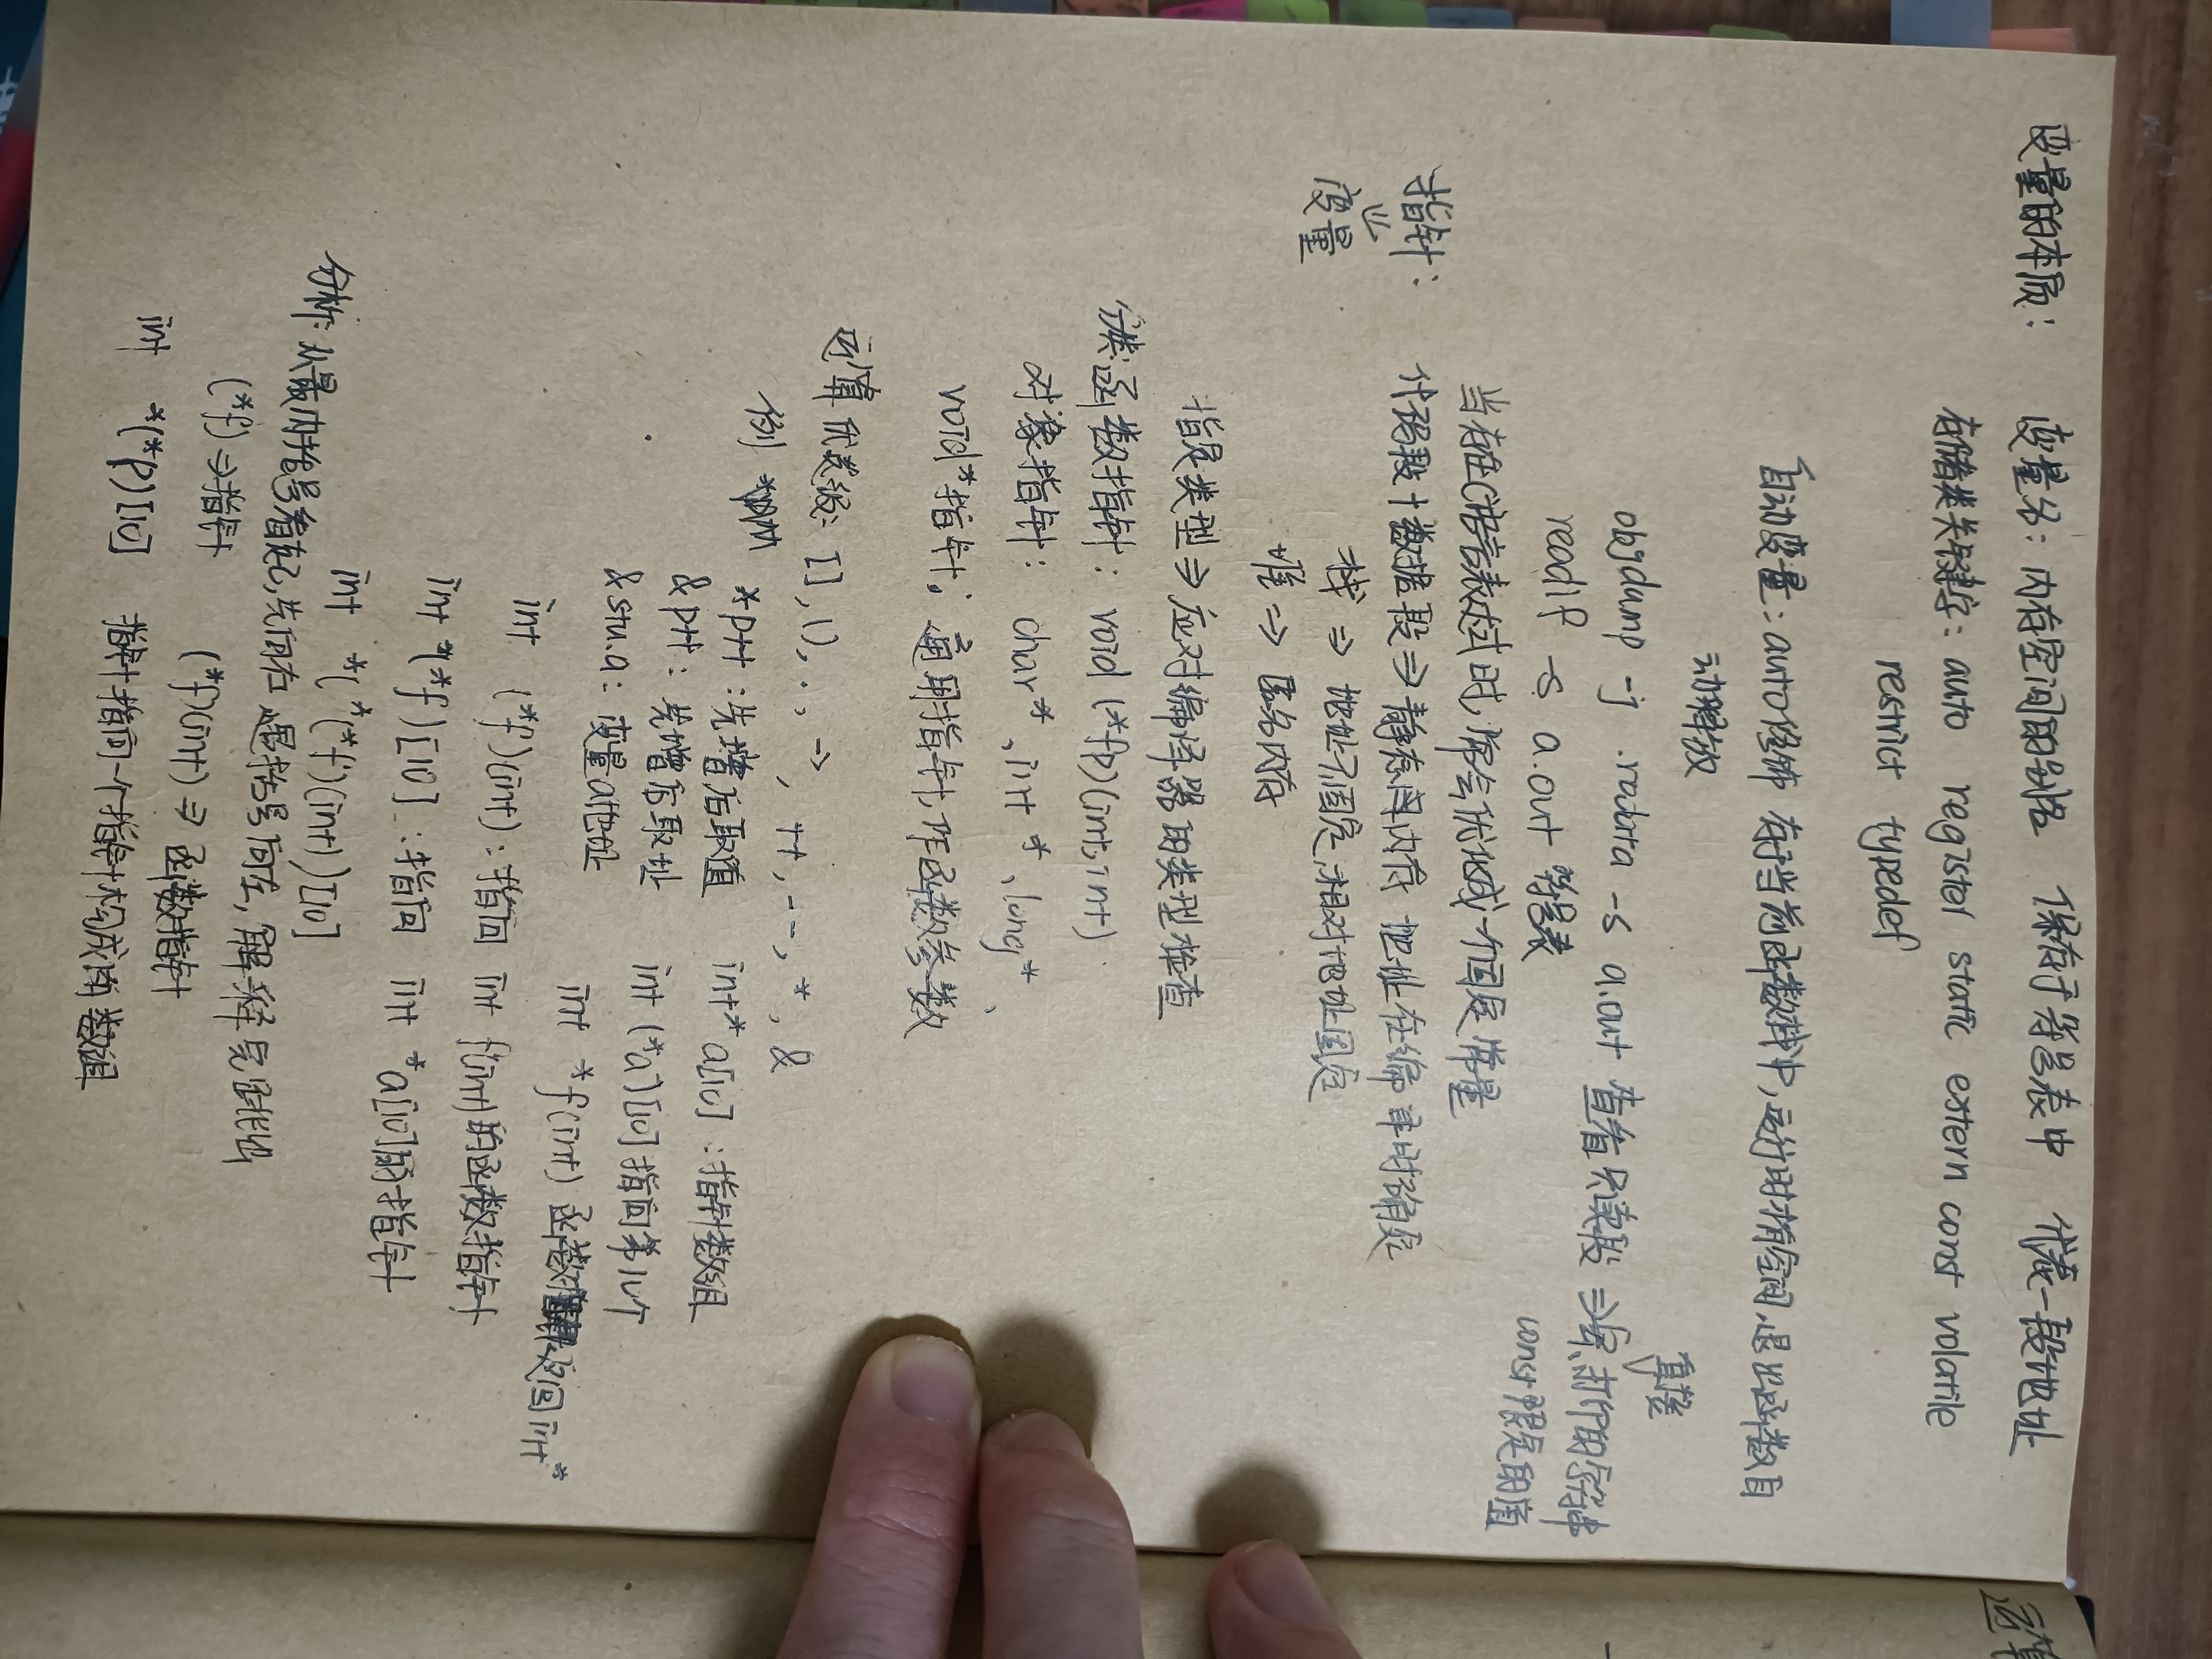 变量的本质： 变量名：内存空间的别名 保存于符号表中 代表一段地址
存储类关键字：auto register static extern const volatile
restrict typedef
自动变量：auto修饰 存于当前函数栈中，运行时有空间，退出函数自
动释放
objdump -j .rodata -s a.out 查看只读段 ⇒ 所打印的字符串
直接
const限定的值
readlf -s a.out 符号表
当存在C语言表达式时，将会优化成一个固定常量
指针： 代码段+数据段 ⇒ 静态内存 地址在编译时确定
变量
栈 ⇒ 地址不固定，相对地址固定
堆 ⇒ 匿名内存
指定类型 ⇒ 应对编译器的类型检查
分类：函数指针： void (*fp)(int, int)
对象指针： char*, int*, long*
void*指针：通用指针，作函数参数
运算优先级：[], (), ., ->, ++, --, *, &
例 *ptt：先增后取值 int* a[10]：指针数组
&ptt：先增后取址 int (*a)[10] 指向第几个
&stu.a：变量a地址 int *f(int) 函数 返回int*
int (*f)(int)：指向 int f(int)的函数指针
int *(*f)[10]：指向 int *a[10]的指针
int *(*(*f)(int))[10]
分析：从最内括号看起，先向右 遇括号向左，解释完跳出
(*f) ⇒ 指针 (*f)(int) ⇒ 函数指针
int *(*p)[10] 指针指向一个指针构成的数组
运算